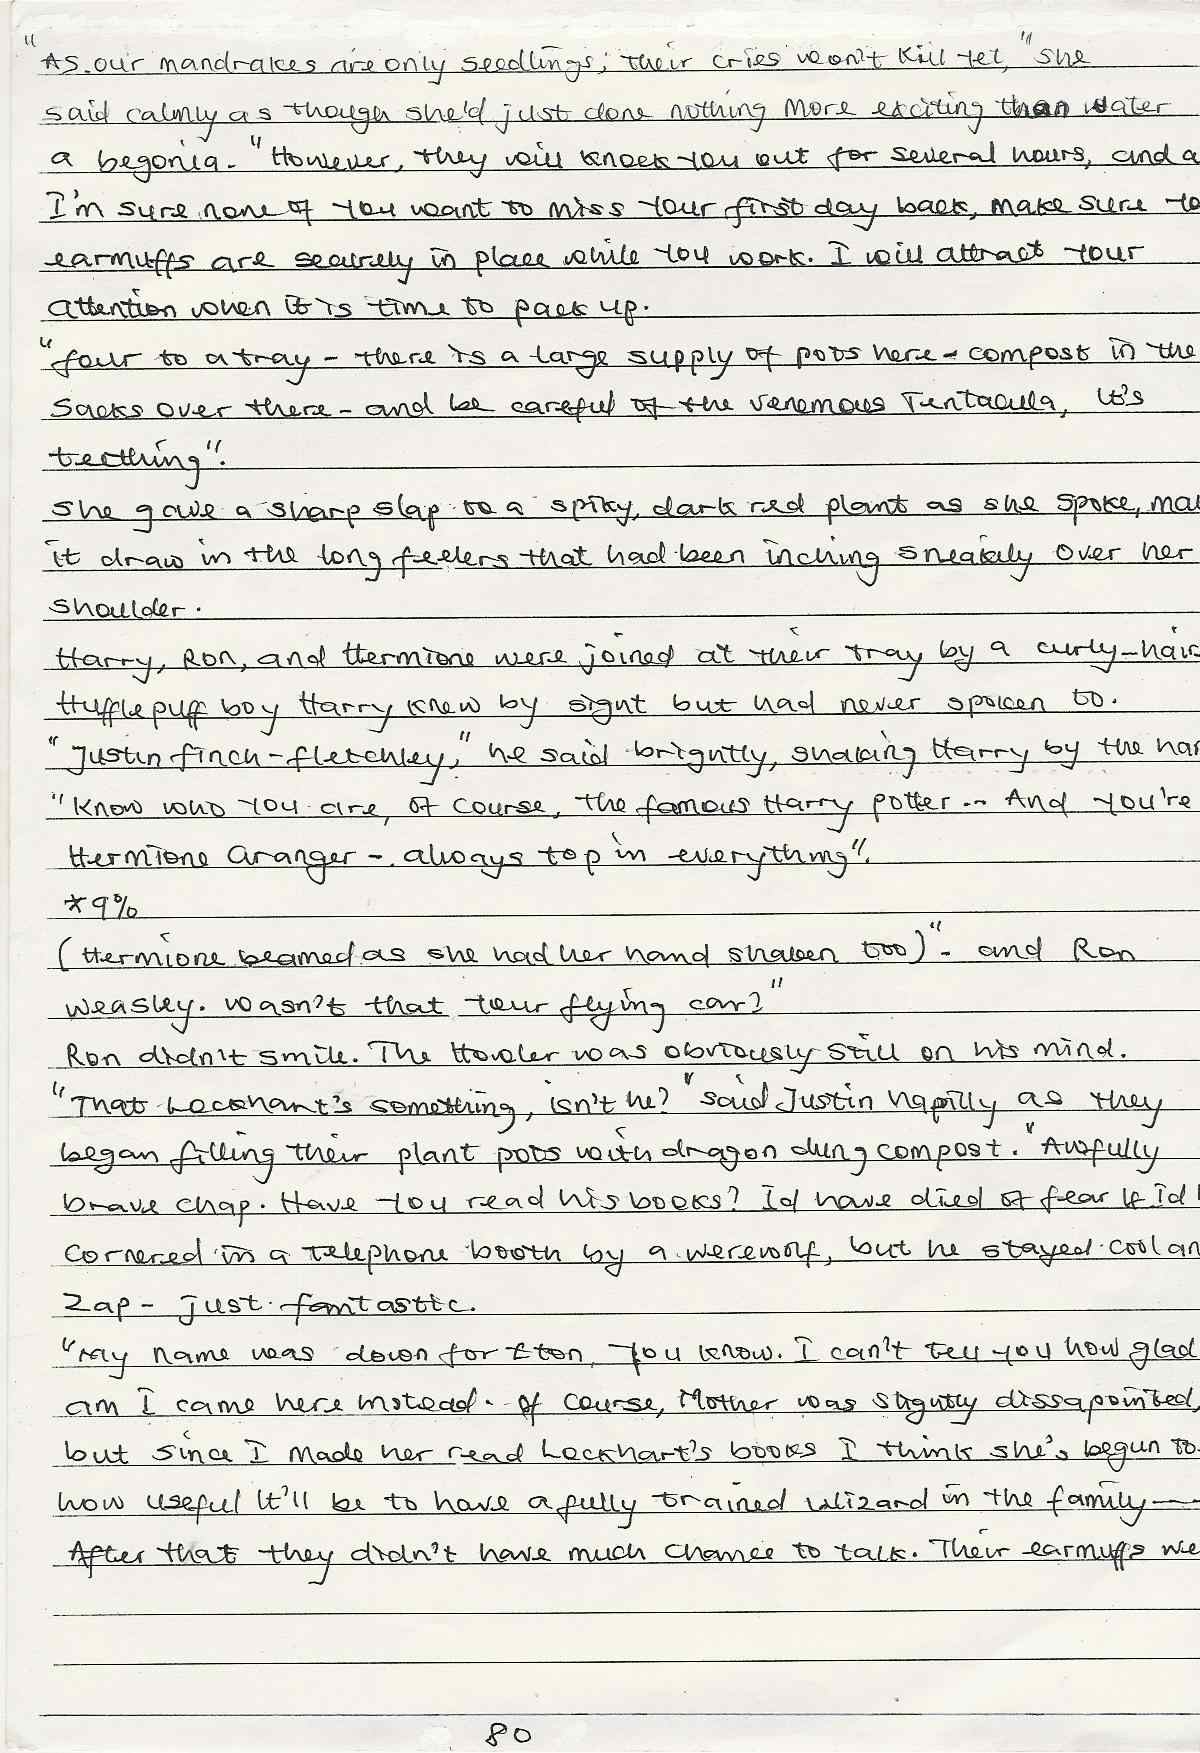 "As our mandrakes are only seedlings; their cries won't kill yet," she
said calmly as though she'd just done nothing more exciting than water
a begonia. "However, they will knock you out for several hours, and a
I'm sure none of you want to miss your first day back, make sure yo
earmuffs are securely in place while you work. I will attract your
attention when it is time to pack up.
"four to a tray - there is a large supply of pots here - compost in the
sacks over there - and be careful of the venemous Tentacula, it's
teething".
she gave a sharp slap to a spiky, dark red plant as she spoke, mak
it draw in the long feelers that had been inching sneakily over her
shoulder.
Harry, Ron, and Hermione were joined at their tray by a curly-hair
Hufflepuff boy Harry knew by sight but had never spoken to.
"Justin finch-fletchley," he said brightly, shaking Harry by the han
"Know who you are, of course, the famous Harry potter... And you're
Hermione Granger - always top in everything".
*9%
(Hermione beamed as she had her hand shaken too)" - and Ron
weasley. wasn't that your flying car?"
Ron didn't smile. The Howler was obviously still on his mind.
"That Lockhart's something, isn't he?" said Justin happily as they
began filling their plant pots with dragon dung compost. "Awfully
brave chap. Have you read his books? Id have died of fear if id b
cornered in a telephone booth by a werewolf, but he stayed cool an
zap - just fantastic.
"my name was down for Eton, you know. I can't tell you how glad
am I came here instead. of course, Mother was slightly dissapointed,
but since I made her read Lockhart's books I think she's begun to
how useful it'll be to have a fully trained wizard in the family—
After that they didn't have much chance to talk. Their earmuffs we
80